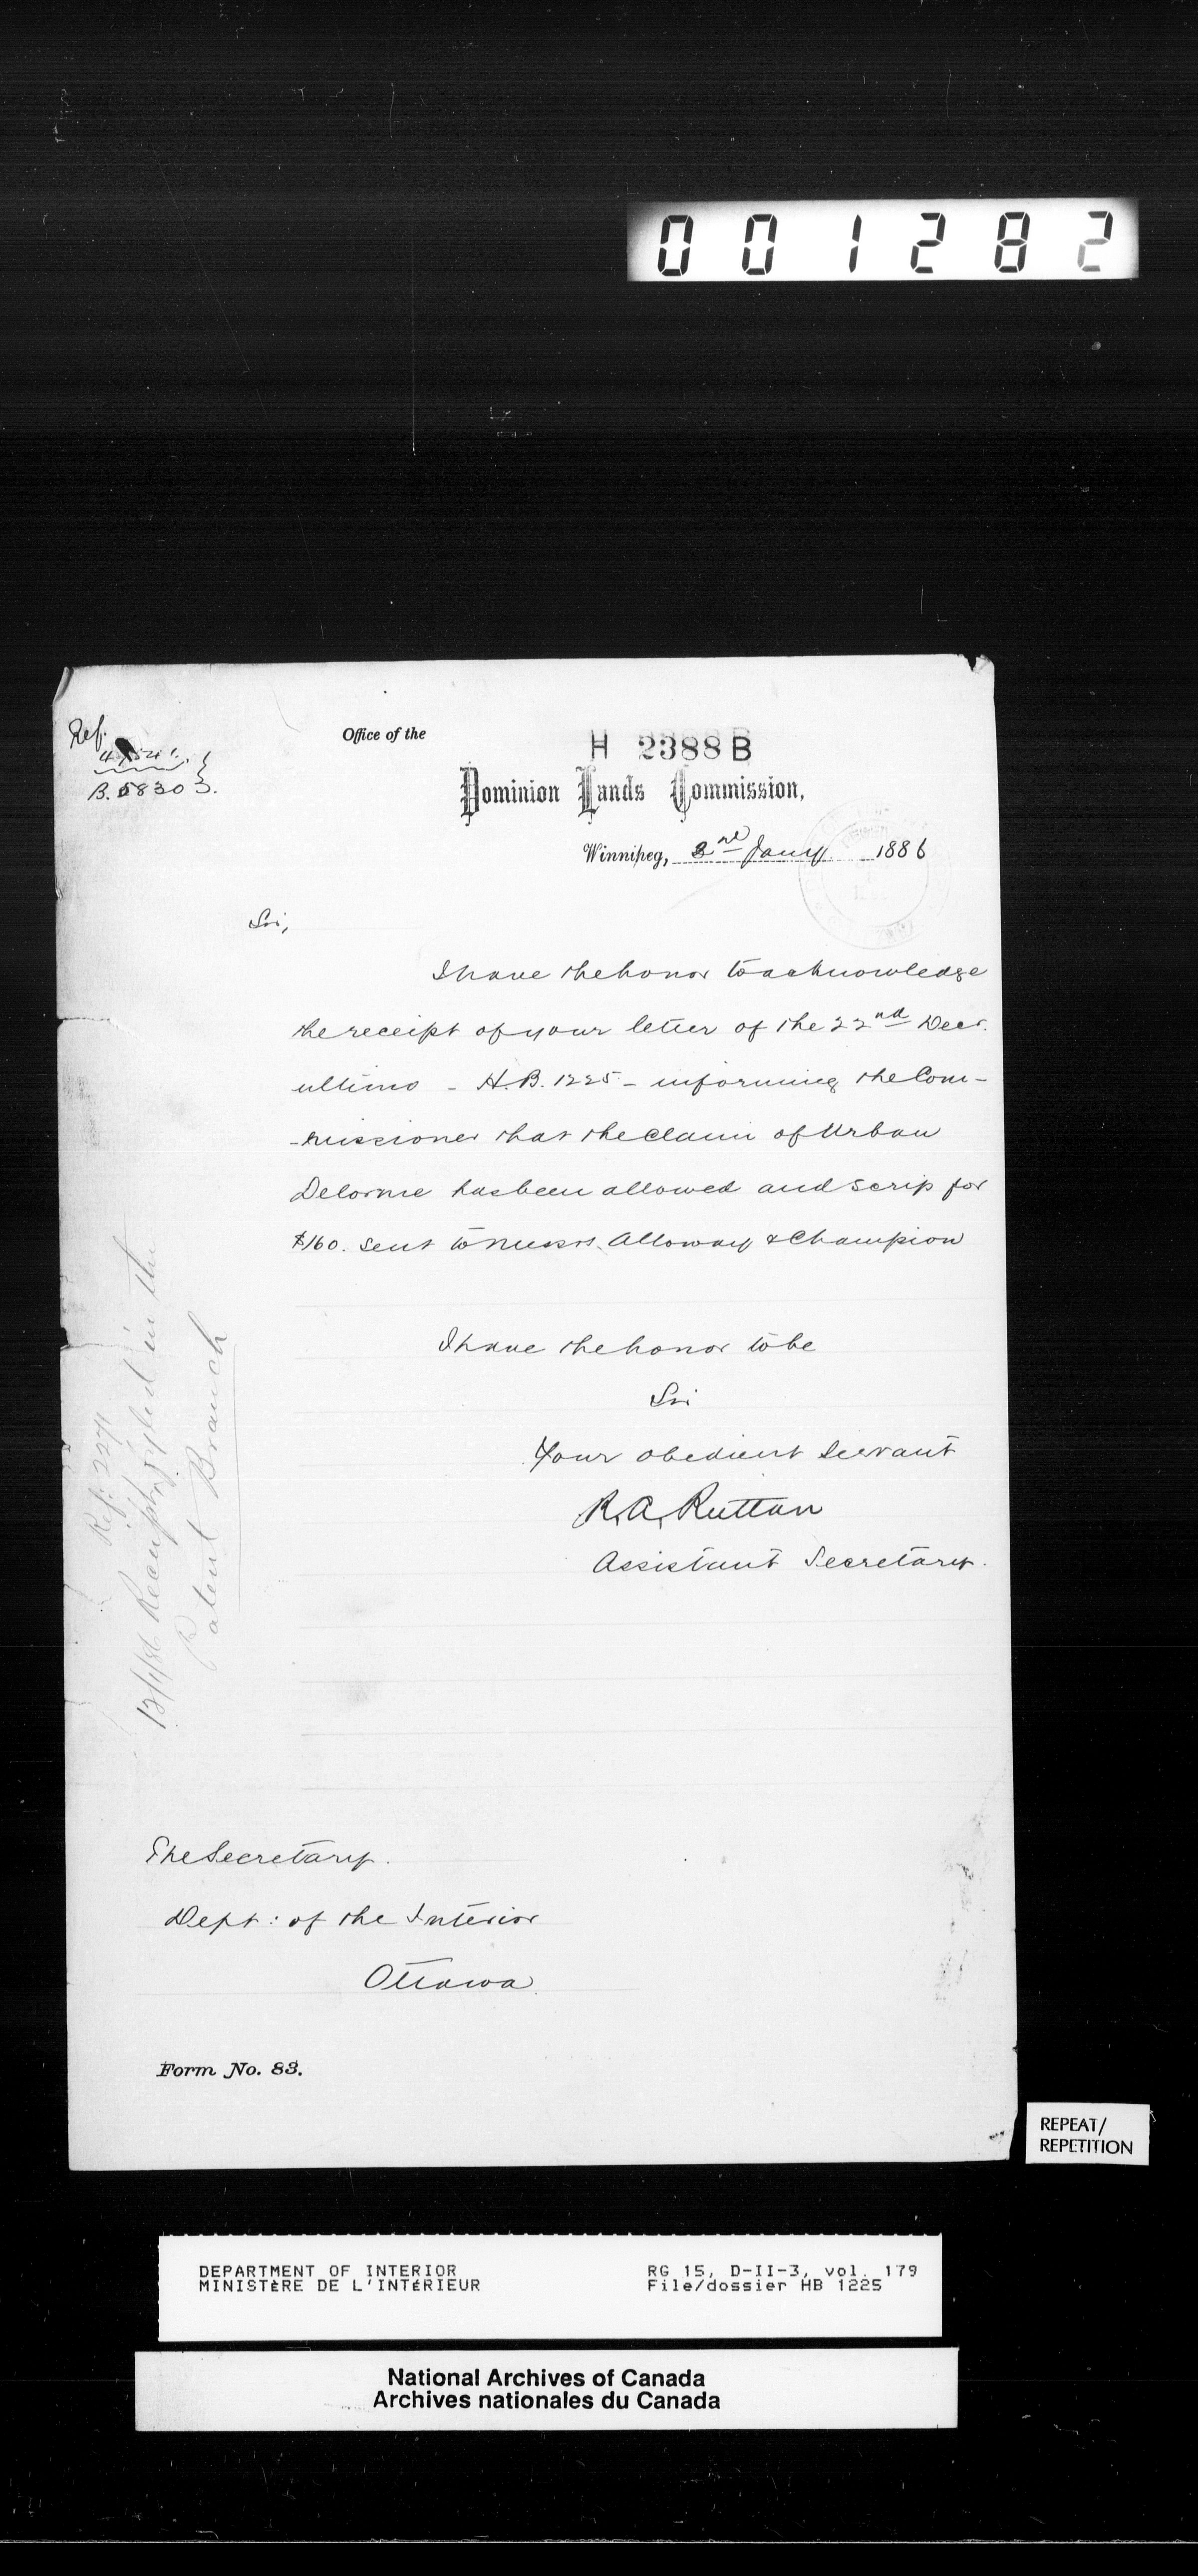 001282
Ref.
B. 58303.
Office of the
H 2388 B
Dominion Lands Commission,
Winnipeg, 2nd Jany 1886
Sir,
I have the honor to acknowledge
the receipt of your letter of the 22nd Decr.
ultimo - H.B. 1225 - informing the Com-
-missioner that the claim of Urban
Delorme has been allowed and scrip for
$160. sent to Messrs. Alloway & Champion
I have the honor to be
Sir
Your obedient servant
R. A. Ruttan
Assistant Secretary.
Ref: 2271
13/1/86 Receipt fyled in the
Patent Branch
The Secretary.
Dept: of the Interior
Ottawa.
Form No. 83.
REPEAT/
REPETITION
DEPARTMENT OF INTERIOR
MINISTÈRE DE L'INTÉRIEUR
RG 15, D-II-3, vol. 179
File/dossier HB 1225
National Archives of Canada
Archives nationales du Canada